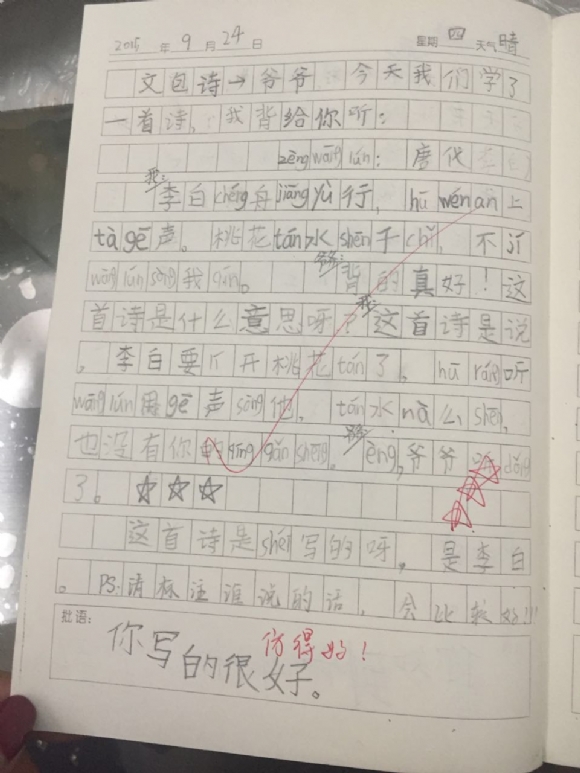 2015 年 9 月 24 日 星期 四 天气 晴
文包诗→爷爷 今天我们学了
一首诗，我背给你听：
zèng wāng lún：唐代
我：
李白chéng舟jiāng yù行，hū wén àn上
tà gē声。桃花tán水shēn千chǐ，不jí
wāng lún sòng我qíng。背的真好！这
爷爷：
首诗是什么意思呀？这首诗是说
我：
，李白要开桃花tán了，hū rán听
wāng lún用gē声sòng他，tán水nà么shēn，
也没有你的qíng gǎn shēn。èng，爷爷 dǒng
爷爷：
了。☆☆☆
这首诗是shéi写的呀，是李白
。PS：请标注谁说的话，会比较好!!!
批语：
你写的很好。
仿得好！